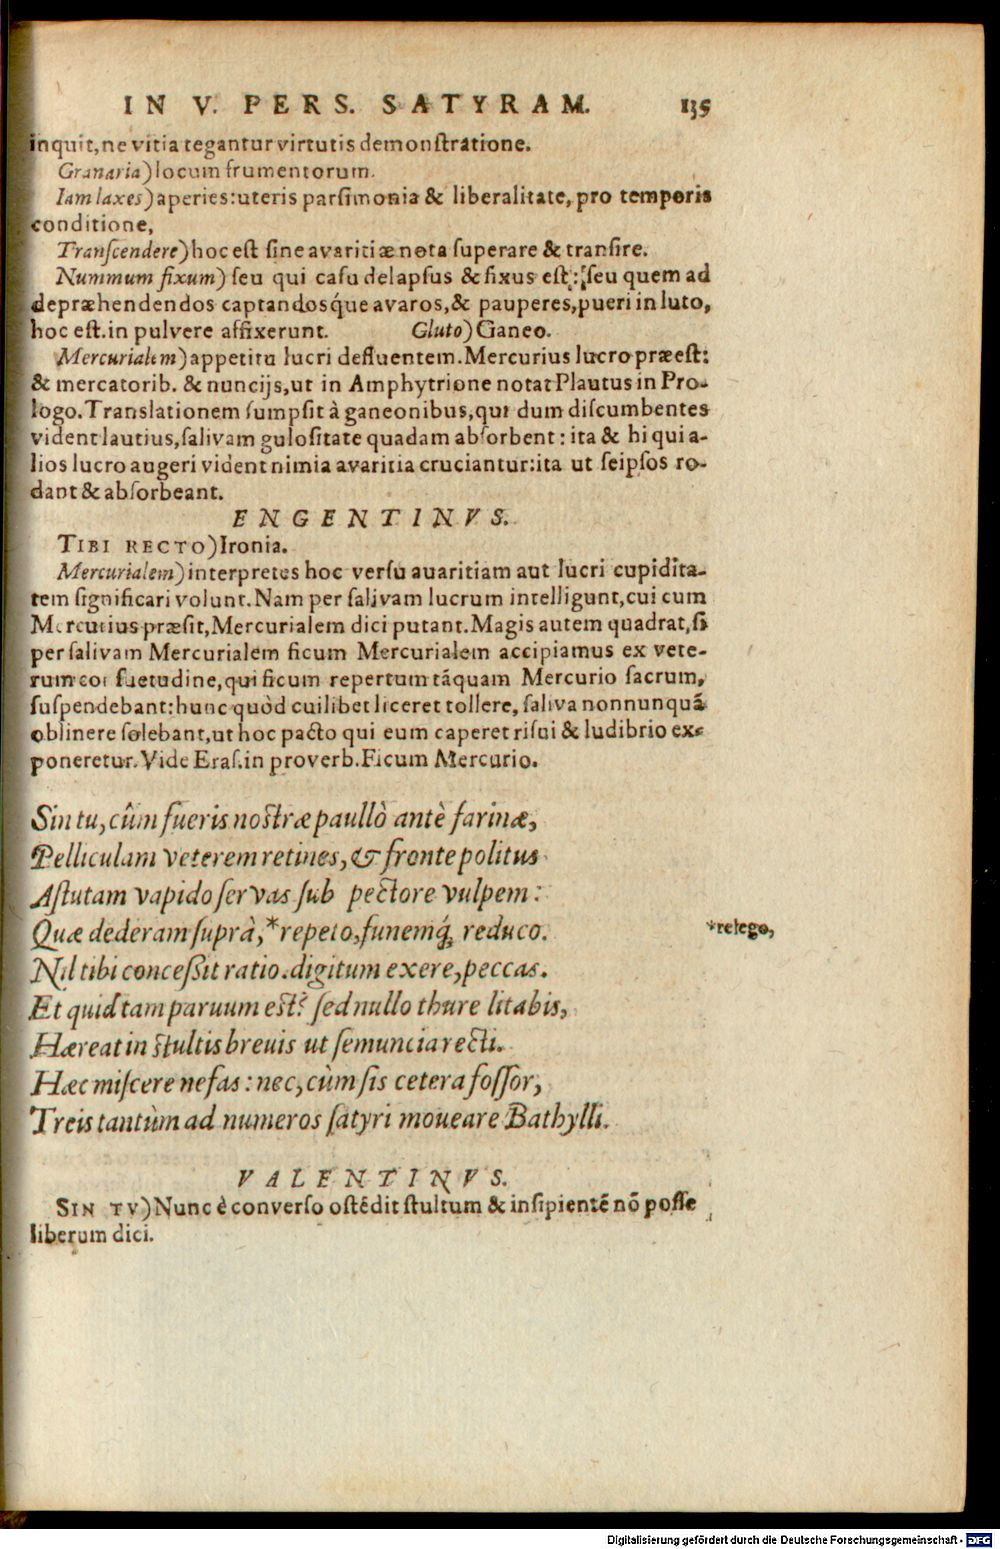 IN V. PERS. SATYRAM. 135
inquit, ne vitia tegantur virtutis demonstratione.
Granaria) locum frumentorum.
Iam laxes) aperies: uteris parsimonia & liberalitate, pro temporis
conditione,
Transcendere) hoc est sine avaritiæ nota superare & transire.
Nummum fixum) seu qui casu delapsus & fixus est: seu quem ad
depræhendendos captandosq́ue avaros, & pauperes, pueri in luto,
hoc est. in pulvere affixerunt. Gluto) Ganeo.
Mercurialem) appetitu lucri defluentem. Mercurius lucro præest:
& mercatorib. & nuncijs, ut in Amphytrione notat Plautus in Pro-
logo. Translationem sumpsit à ganeonibus, qui dum discumbentes
vident lautius, salivam gulositate quadam absorbent: ita & hi qui a-
lios lucro augeri vident nimia avaritia cruciantur: ita ut seipsos ro-
dant & absorbeant.
ENGENTINVS.
TIBI RECTO) Ironia.
Mercurialem) interpretes hoc versu avaritiam aut lucri cupidita-
tem significari volunt. Nam per salivam lucrum intelligunt, cui cum
Mercurius præsit, Mercurialem dici putant. Magis autem quadrat, si
per salivam Mercurialem ficum Mercurialem accipiamus ex vete-
rum consuetudine, qui ficum repertum tãquam Mercurio sacrum,
suspendebant: hunc quòd cuilibet liceret tollere, saliva nonnunquã
oblinere solebant, ut hoc pacto qui eum caperet risui & ludibrio ex-
poneretur. Vide Eras. in proverb. Ficum Mercurio.
Sin tu, cûm fueris nostræ paullò antè farinæ,
Pelliculam veterem retines, & fronte politus
Astutam vapido servas sub pectore vulpem:
Quæ dederam suprà, *repeto, funemq́; reduco.
*relego,
Nil tibi concessit ratio. digitum exere, peccas.
Et quid tam paruum est? sed nullo thure litabis,
Hæreat in stultis breuis ut semuncia recti.
Hæc miscere nefas: nec, cùm sis cetera fossor,
Treis tantùm ad numeros satyri moueare Bathylli.
VALENTINVS.
SIN TV) Nunc è converso ostẽdit stultum & insipientẽ nõ posse
liberum dici.
Digitalisierung gefördert durch die Deutsche Forschungsgemeinschaft - DFG